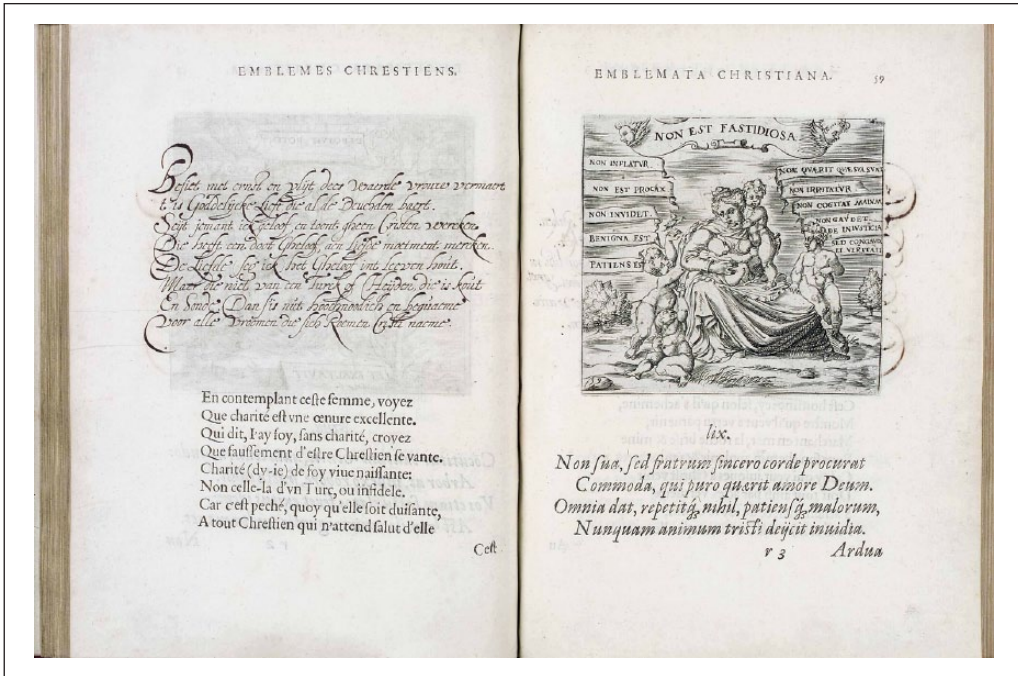 EMBLEMES CHRESTIENS.
Besiet met ernst en vlijt deer Vrouwe vermaert
t'is Goddelijcke die al de Deuchden baert.
Seijt jemant ick geloof, en toont gheen
Die heeft een doot Gheloof, men
De Liefde seg ick het Gheloof int leeven hout.
Maer die niet van een Turck of Heijden, die is kout
En Sonde. Dan sij is nut en bequaeme
Voor alle Vroomen die sich Roemen naeme.
En contemplant ceste femme, voyez
Que charité est vne œnure excellente.
Qui dit, I'ay foy, sans charité, croyez
Que faussement d'estre Chrestien se vante.
Charité (dy-ie) de foy viue naissante:
Non celle-la d'vn Turc, ou infidele.
Car c'est peché, quoy qu'elle soit duisante,
A tout Chrestien qui n'attend salut d'elle
Cest
EMBLEMATA CHRISTIANA. 59
NON EST FASTIDIOSA
NON INFLATVR
NON EST PROCAX
NON INVIDET.
BENIGNA EST
PATIENS EST
NON QVÆRIT QVÆ SVA SVNT
NON IRRITATVR
NON COGITAT MALVM
NON GAVDET
DE INIVSTICIA
SED CONGAVD
ET VERITATI
lix.
Non sua, sed fratrum sincero corde procurat
Commoda, qui puro quærit amore Deum.
Omnia dat, repetitq́, nihil, patiensq́, malorum,
Nunquam animum tristi deijcit inuidia.
r 3 Ardua